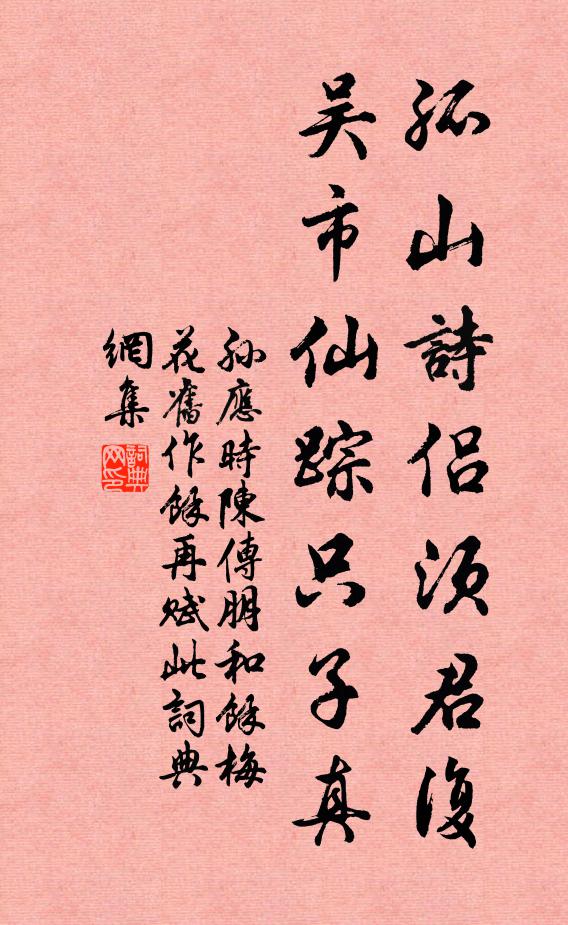 孤山詩侶須君復
吳市仙踪只子真
孙應時陳傅朋和餘梅
花舊作餘再赋此詞典
網集
詞典
网印